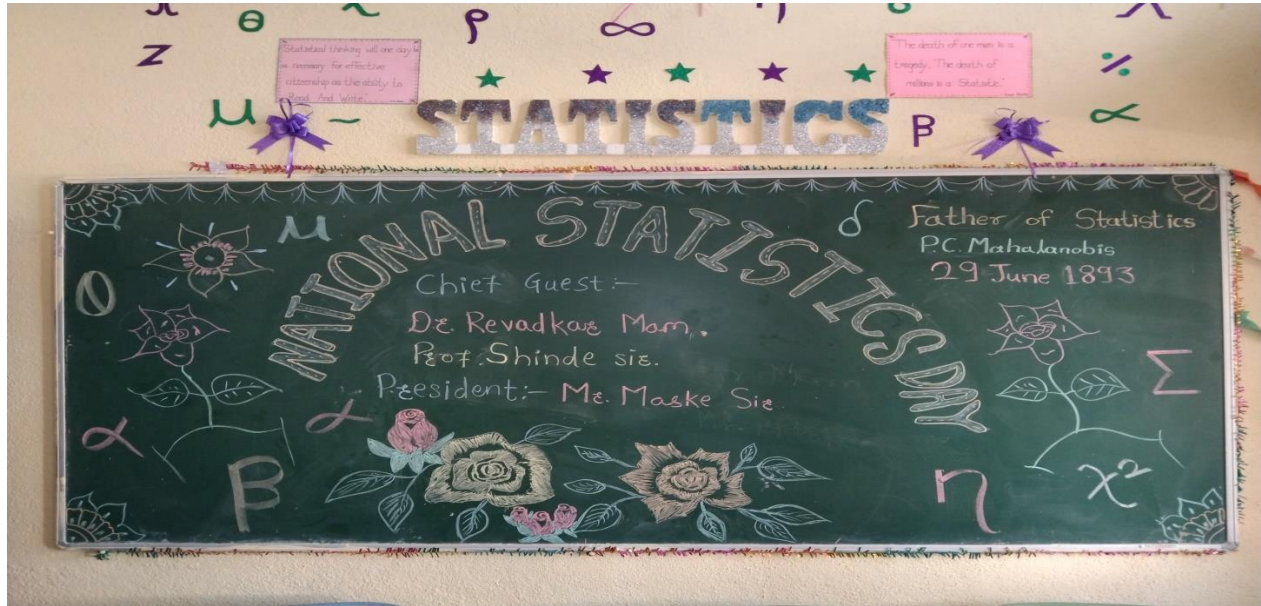 λ θ ~ ρ ∞ η δ λ
Z
Statistical thinking will one day
necessary for effective
citizenship as the ability to
Read And Write."
"The death of one man is a
tragedy. The death of
millions is a Statistic."
÷
μ ~ STATISTICS β α
NATIONAL STATISTICS DAY
μ
δ
Father of Statistics
P.C. Mahalanobis
29 June 1893
θ
Chief Guest:-
Dr. Revadkar Mam.
Prof. Shinde sir.
President:- Mr. Maske Sir
Σ
α α
β
η
χ²